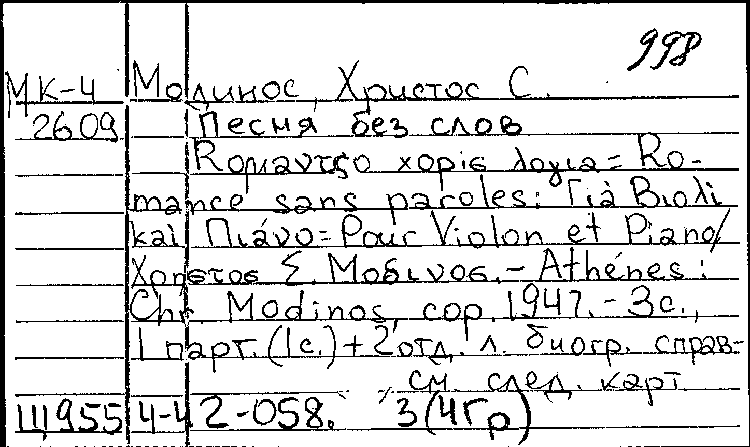 998
МК-4 Модинос, Христос С.
2609 Песня без слов
Romαντζο χορίς λογια = Ro-
mance sans paroles: Γιὰ Βιολί
καὶ Πιάνο = Pour Violon et Piano/
Χρηστος Σ. Μοδινος. - Athénes:
Chr. Modinos, cop. 1947. - 3с.,
1 парт. (1с.) + 2 отд. л. биогр. справ-
см. след. карт.
Щ955 4-42-058. 3(4Гр)